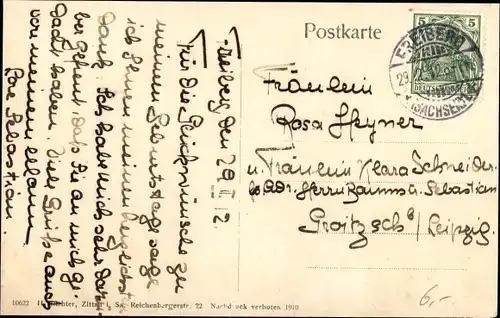 Postkarte
5 5
FREIBERG
29.
(SACHSEN)
Freiberg, den 29. II. 12.
Für die Glückwünsche zu
meinem Geburtstage sage
ich Ihnen meinen herzlichsten
Dank. Ich habe mich sehr dar
über gefreut, daß Sie an mich ge
dacht haben. Viele Grüße auch
von meinem Mann
Rose Sebastian.
Fräulein
Rosa Heyner
u. Fräulein Klara Schneider
Adr. Herrn Baums u. Sebastian
Groitzsch b/ Leipzig.
10622 Zittau i. Sa. Reichenbergerstr. 22 Nachdruck verboten 1910
6,-